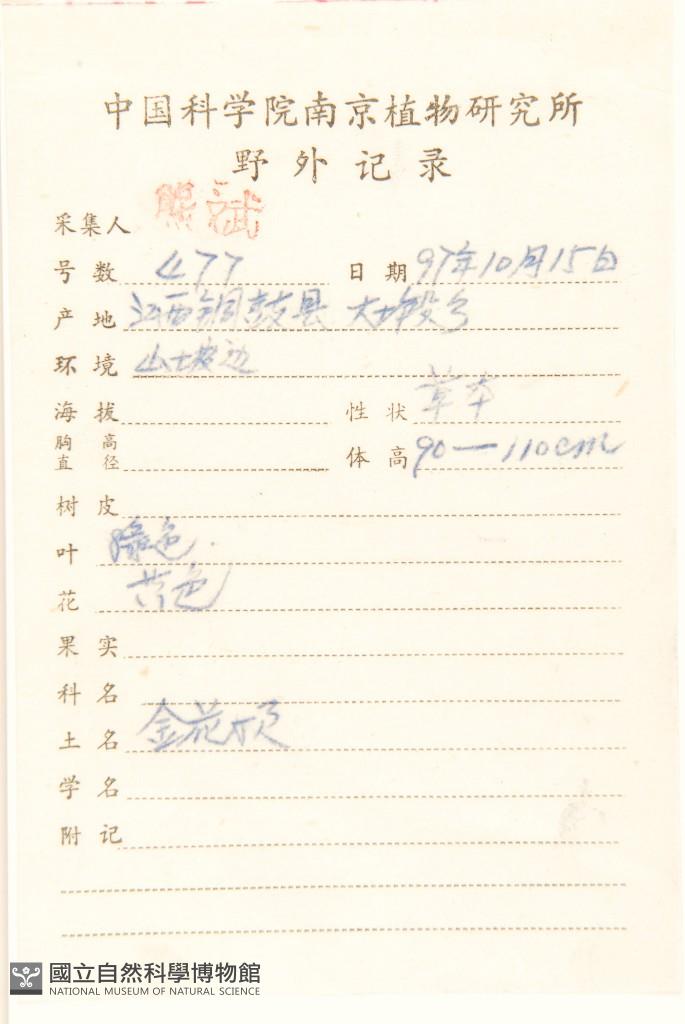 中国科学院南京植物研究所
野外记录
采集人 熊斌
号数 477 日期 97年10月15日
产地 江西铜鼓县 大塅乡
环境 山坡边
海拔 性状 草本
胸高直径 体高 90—110cm
树皮
叶 绿色.
花 黄色
果实
科名
土名 金花
学名
附记
國立自然科學博物館
NATIONAL MUSEUM OF NATURAL SCIENCE